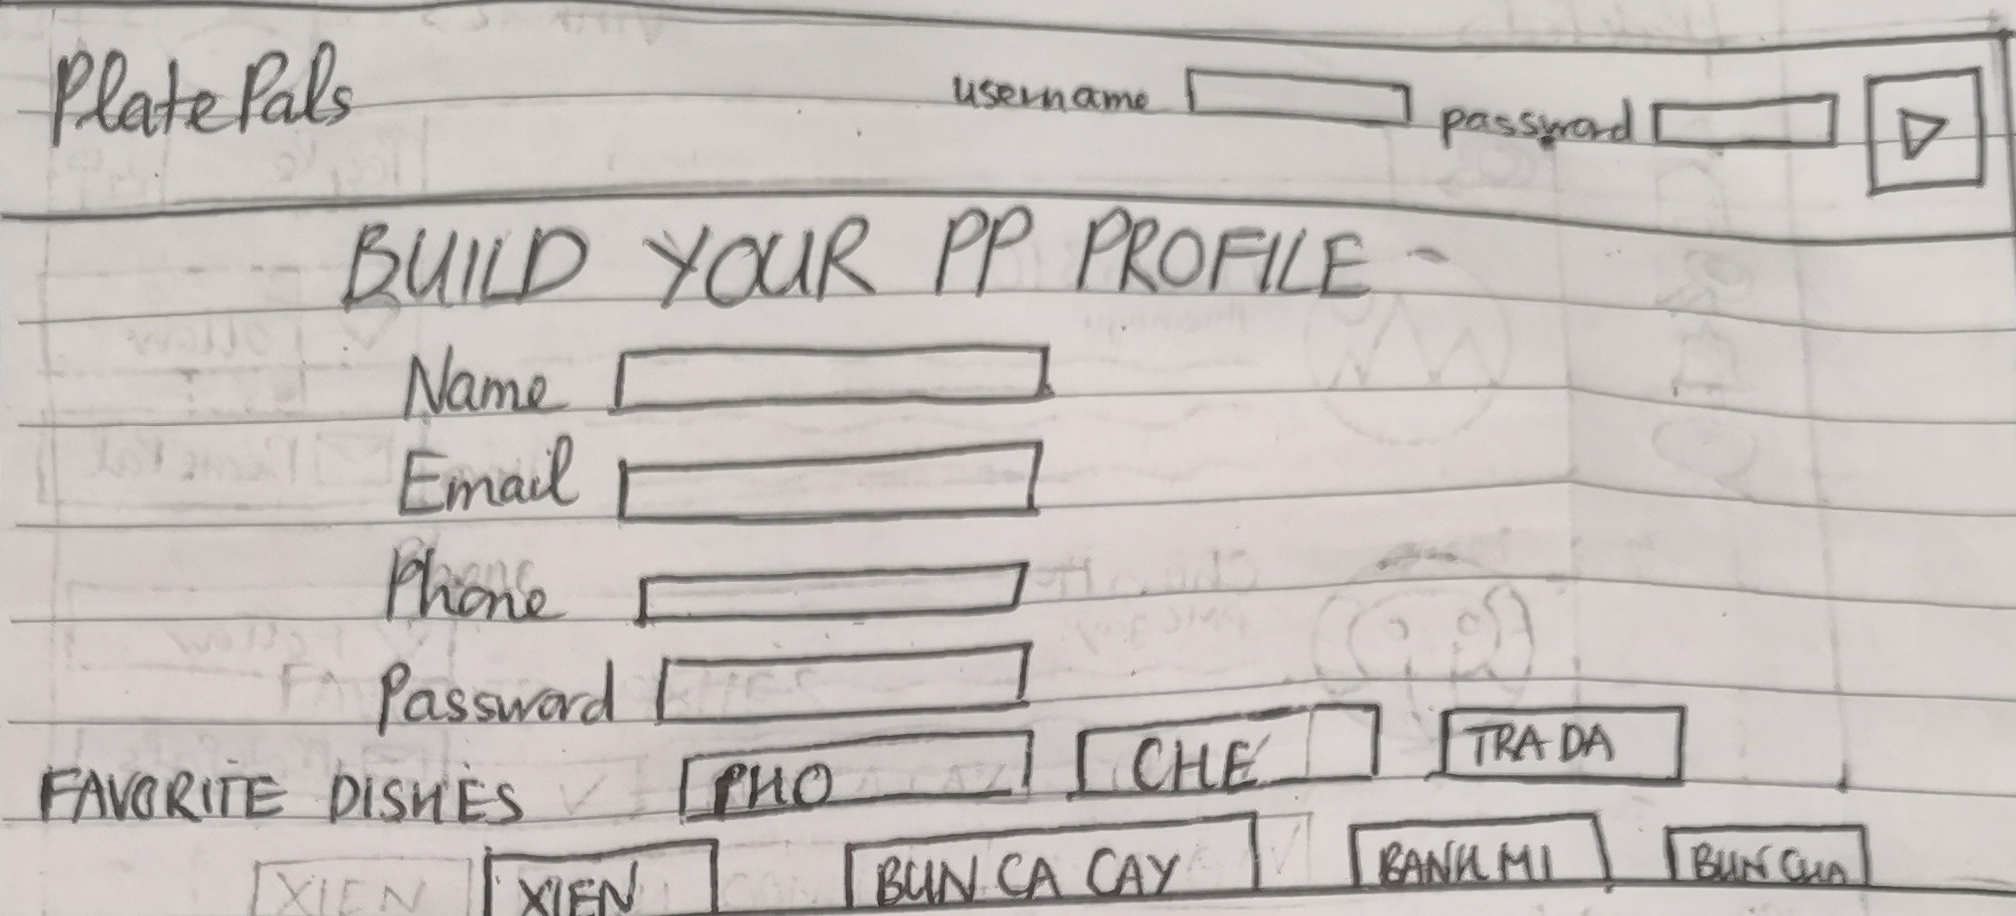 PlatePals username password
BUILD YOUR PP PROFILE -
Name
Email
Phone
Password
FAVORITE DISHES PHO CHE TRA DA
XIEN XIEN BUN CA CAY BANH MI BUN CHA